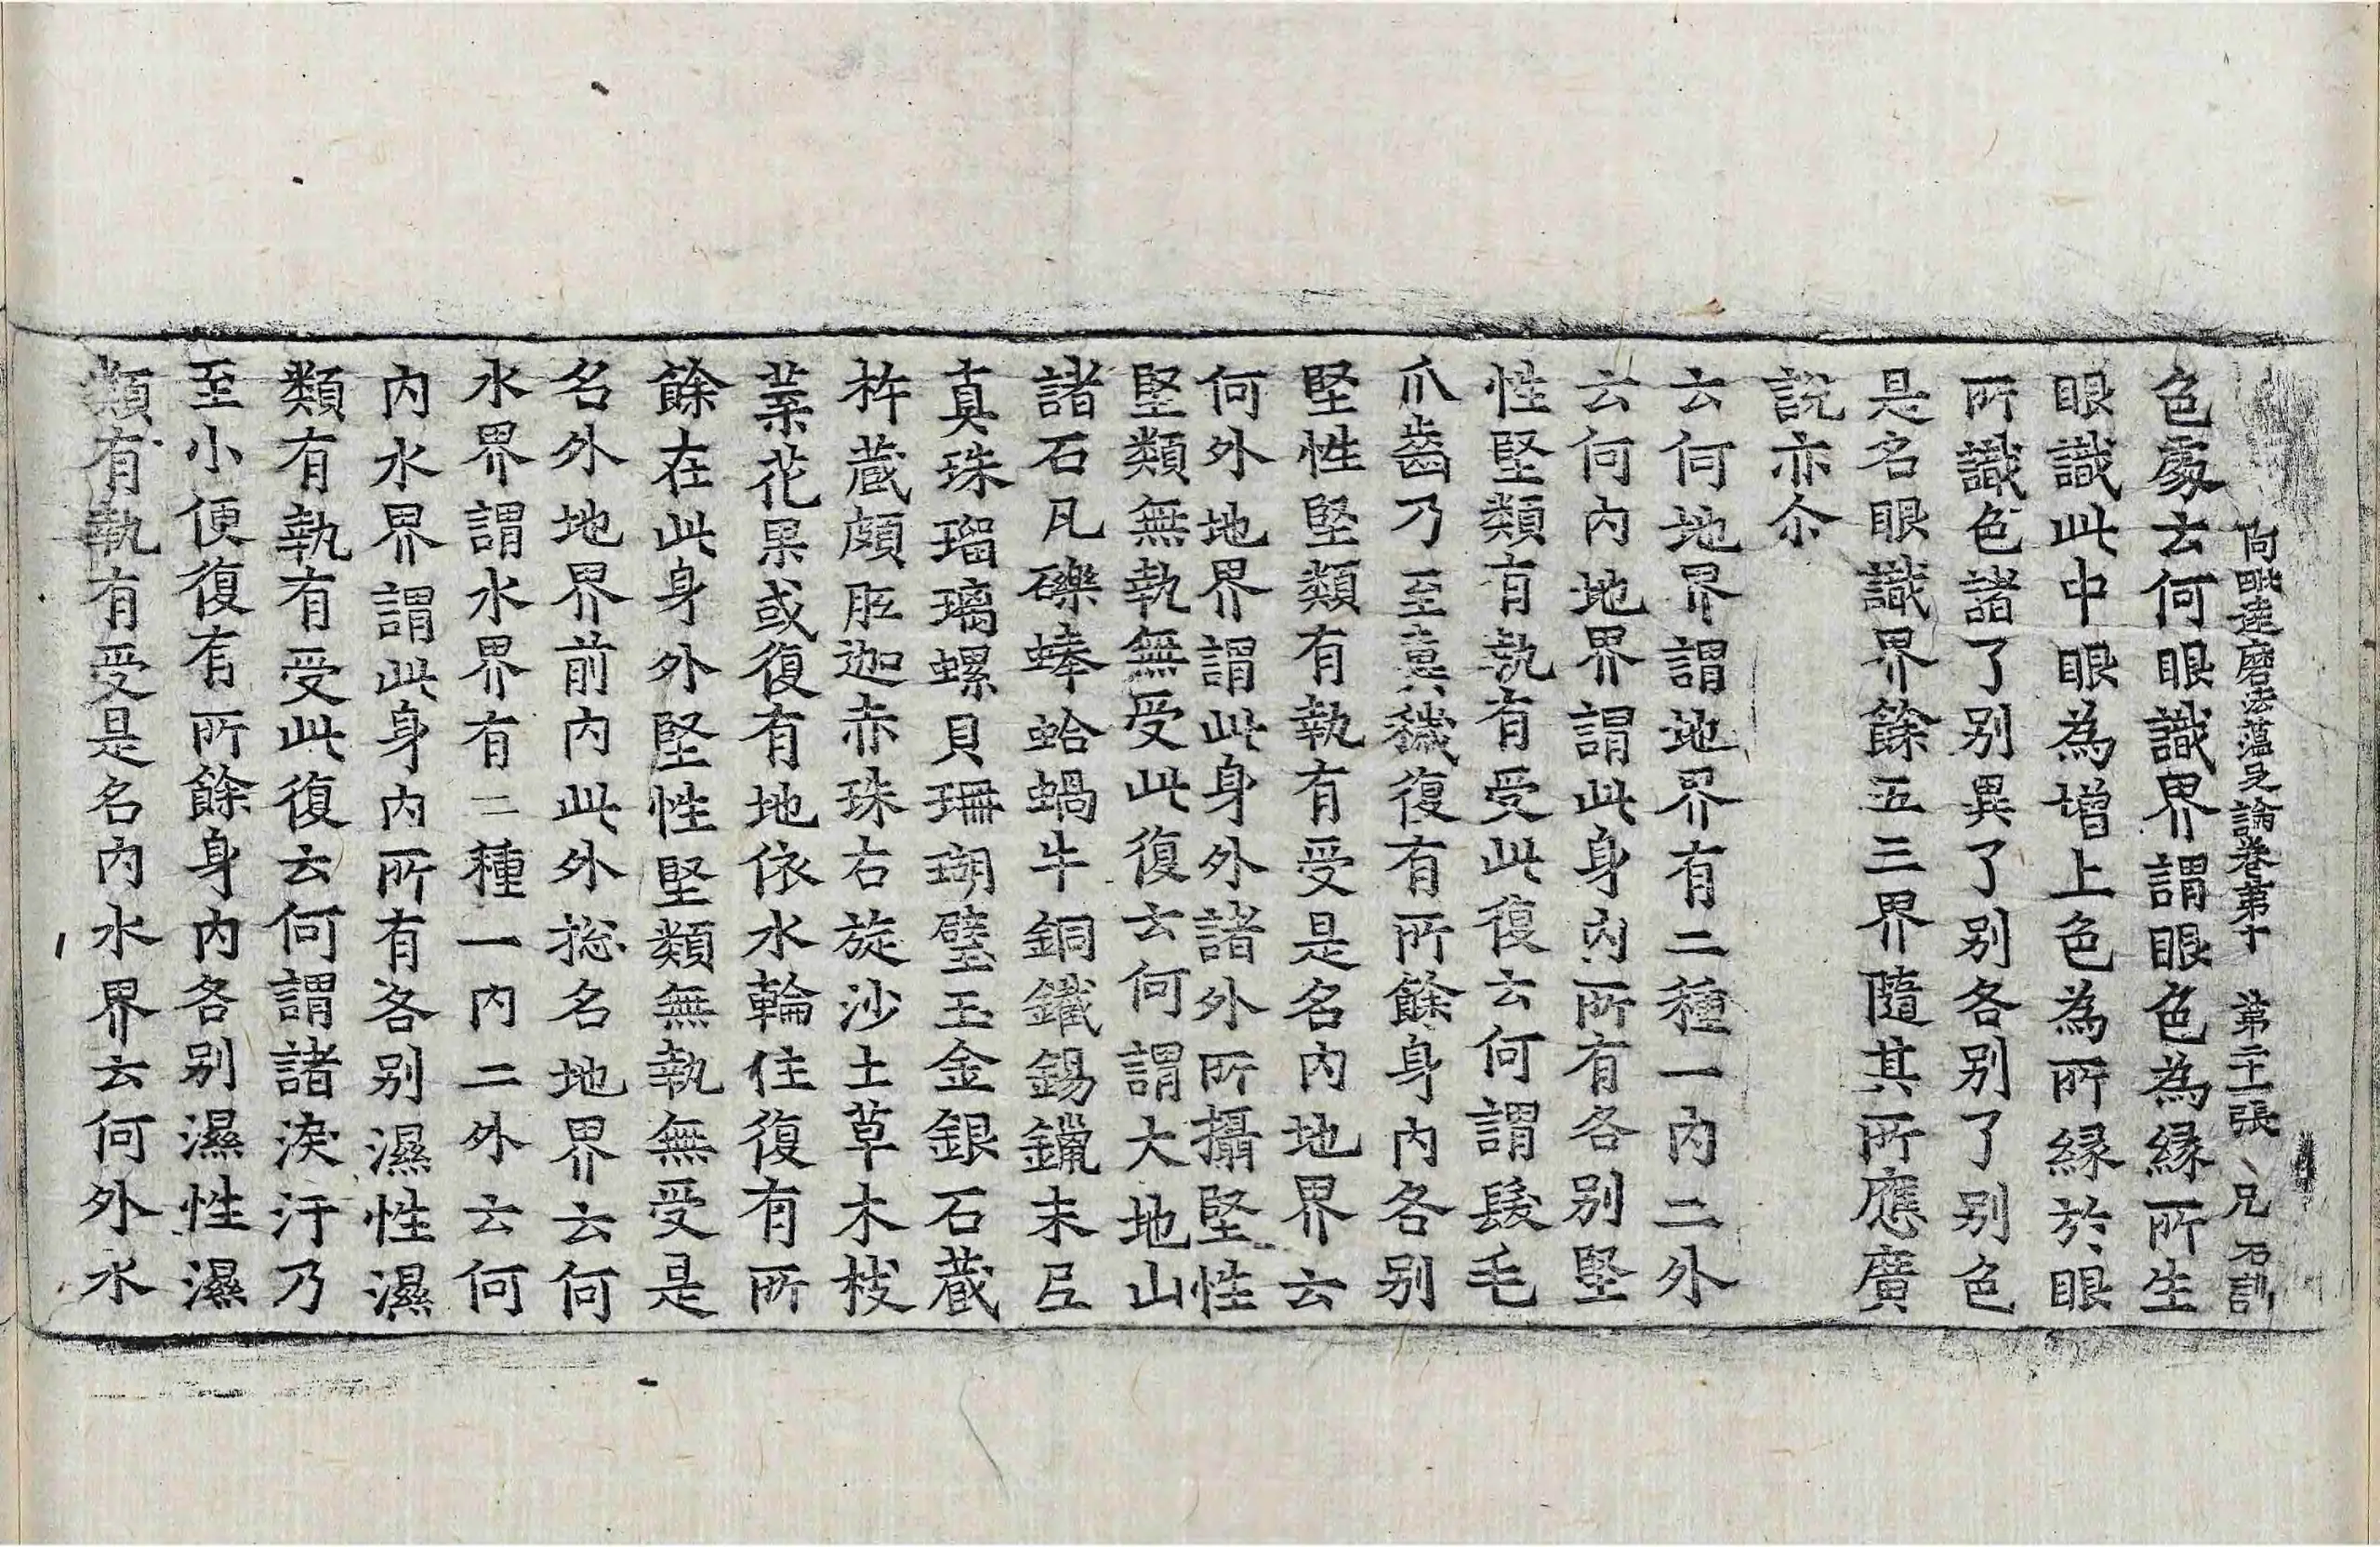 阿毗達磨法蘊足論卷第十 第二十一張 兄 石訓
色處云何眼識界謂眼色為縁所生
眼識此中眼為增上色為所縁於眼
所識色諸了别異了别各别了别色
是名眼識界餘五三界隨其所應廣
説亦尒
云何地界謂地界有二種一内二外
云何内地界謂此身内所有各别堅
性堅類有執有受此復云何謂髮毛
爪齒乃至糞穢復有所餘身内各别
堅性堅類有執有受是名内地界云
何外地界謂此身外諸外所攝堅性
堅類無執無受此復云何謂大地山
諸石凡礫蜯蛤蝸牛銅鐵錫鑞末𡰱
真珠瑠璃螺貝珊瑚璧玉金銀石藏
杵蔵頗胝迦赤珠右旋沙土草木枝
葉花果或復有地依水輪住復有所
餘在此身外堅性堅類無執無受是
名外地界前内此外捴名地界云何
水界謂水界有二種一内二外云何
内水界謂此身内所有各别濕性濕
類有執有受此復云何謂諸淚汗乃
至小便復有所餘身内各别濕性濕
類有執有受是名内水界云何外水